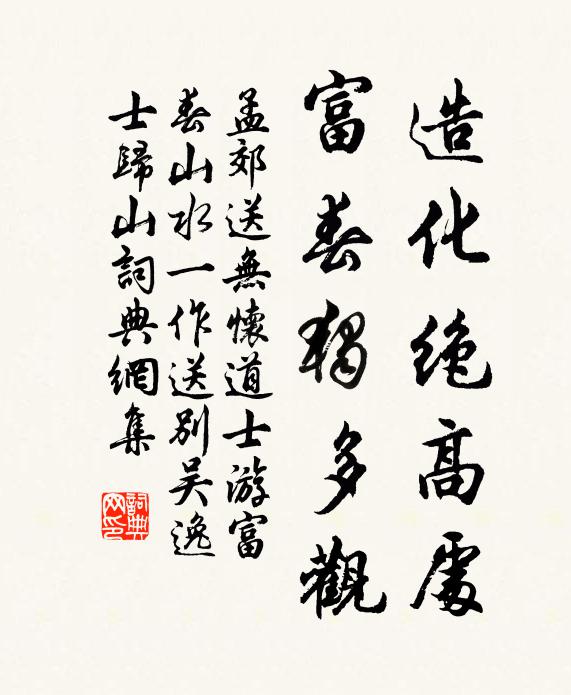 造化绝高處
富春獨多觀
孟郊送無懷道士游富
春山水一作送别吴逸
士歸山詞典網集
詞典网印